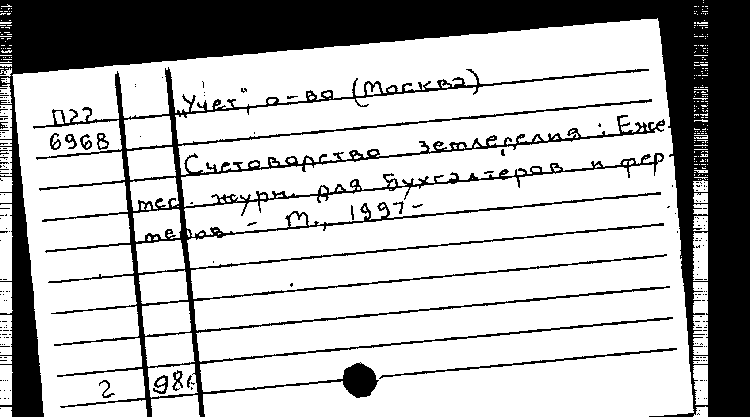 П22 „Учет", о-во (Москва)
6968
Счетоводство земледелия: Еже
мес. журн. для бухгалтеров и фер-
меров. - М., 1997-
2 986